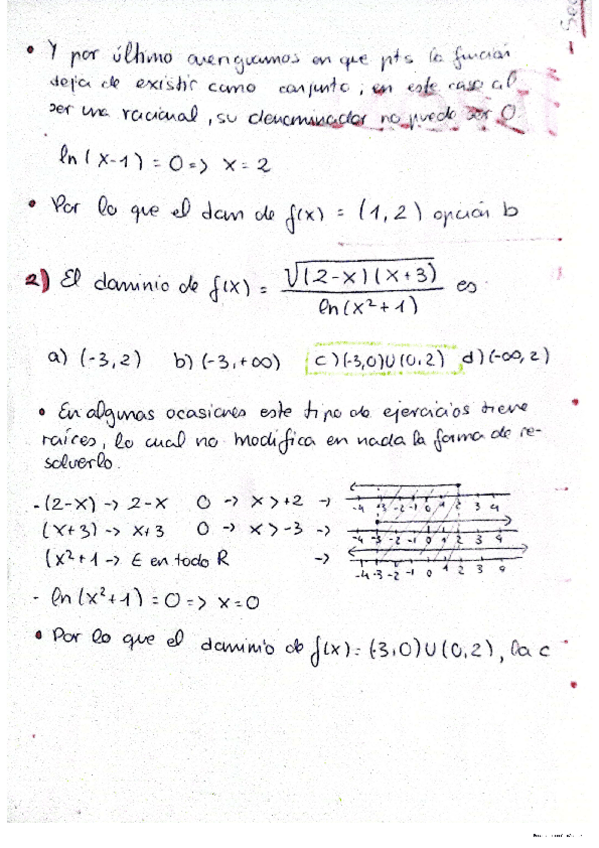 • Y por último averiguamos en que pts la función
deja de existir como conjunto; en este caso al
ser una racional, su denominador no puede ser 0.
ln(x-1) = 0 => x = 2
• Por lo que el dom de f(x) = (1,2) opción b
2) El dominio de f(x) = √(2-x)(x+3) / ln(x²+1) es
a) (-3,2) b) (-3,+∞) c) (-3,0)U(0,2) d) (-∞,2)
• En algunas ocasiones este tipo de ejercicios tiene
raíces, lo cual no modifica en nada la forma de re-
solverlo.
- (2-x) -> 2-x 0 -> x > +2 ->
-4 -3 -2 -1 0 1 2 3 4
(x+3) -> x+3 0 -> x > -3 ->
-4 -3 -2 -1 0 1 2 3 4
(x²+1 -> E en todo R ->
-4 -3 -2 -1 0 1 2 3 4
- ln(x²+1) = 0 => x = 0
• Por lo que el dominio de f(x) = (-3,0)U(0,2), la c